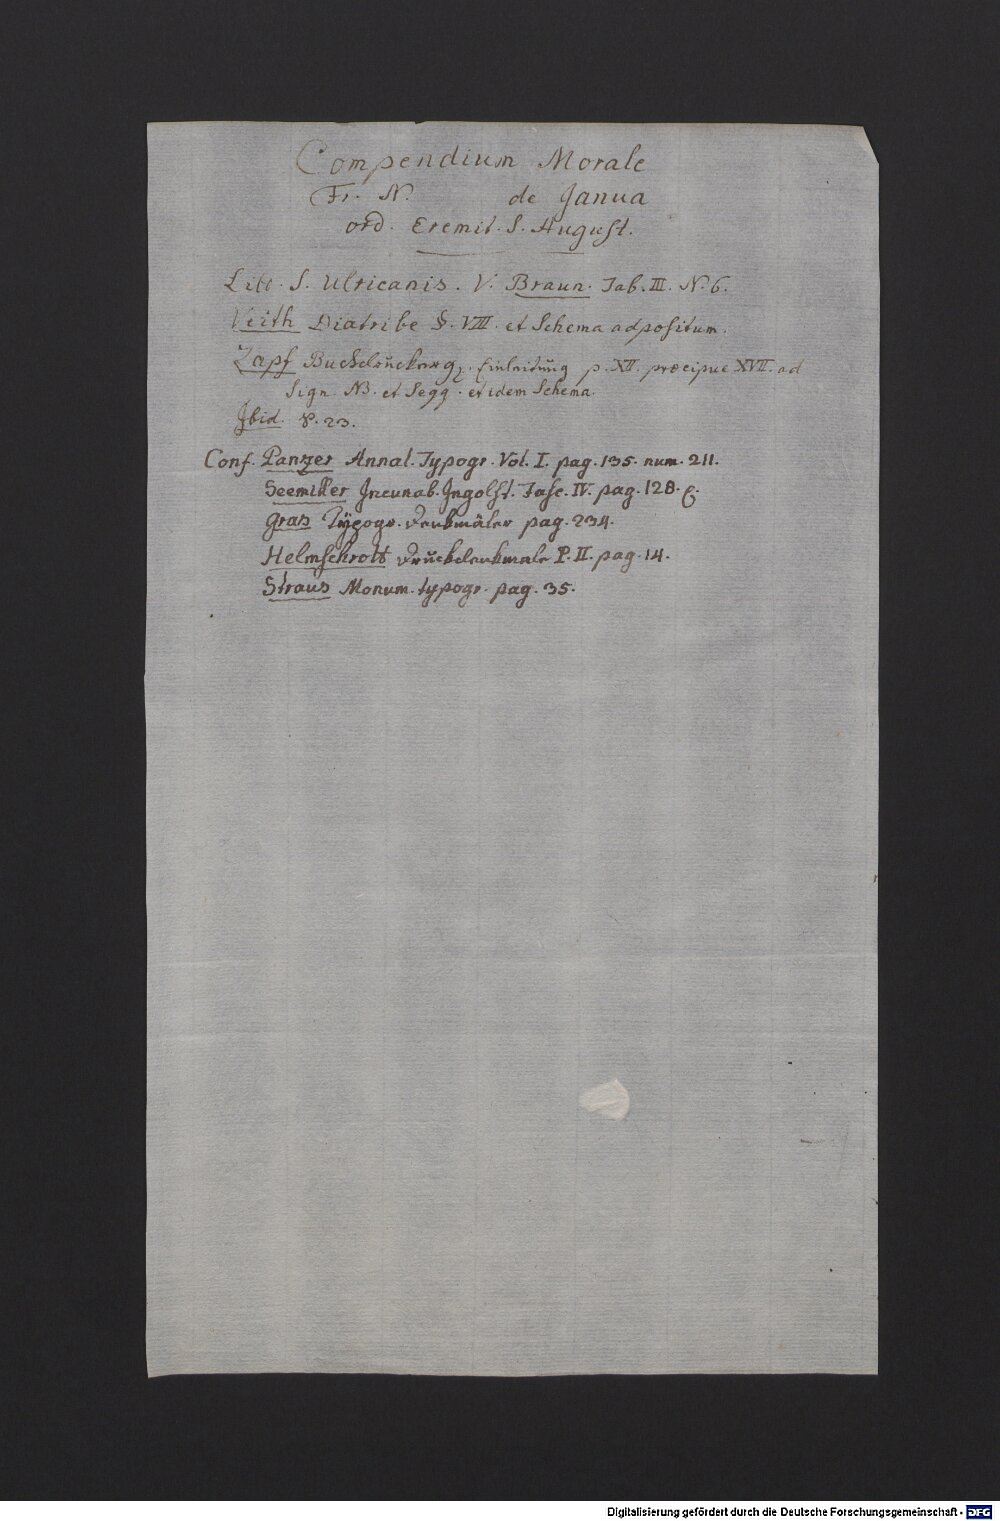 Compendium Morale
Fr. N. de Janua
ord. Eremit. S. August.
Litt. S. Ulricanis. V. Braun. Tab. III. N. 6.
Veith Diatribe §. VIII. et Schema adpositum.
Zapf Einleitung p. XII. præcipue XVII. ad
Sign. NB. et Segg. et idem Schema.
Ibid. P. 23.
Conf. Panzer Annal. Typogr. Vol. I. pag. 135. num. 211.
Seemiller Incunab. Ingolst. Fasc. IV. pag. 128.
Gras Typogr. Denkmäler pag. 234.
Helmschrott Druckdenkmale P. II. pag. 14.
Straus Monum. typogr. pag. 35.
Digitalisierung gefördert durch die Deutsche Forschungsgemeinschaft - DFG